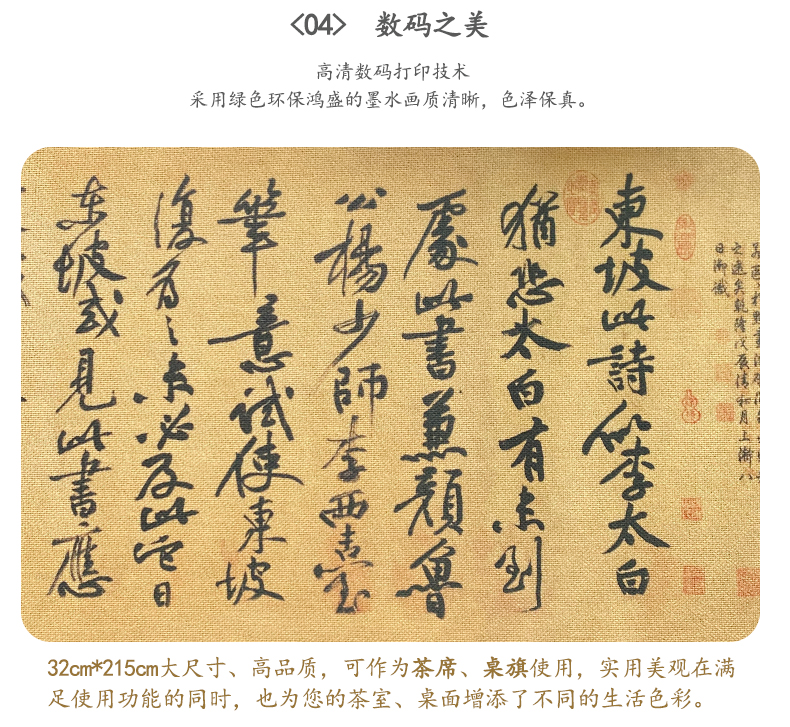 <04> 数码之美
高清数码打印技术
采用绿色环保鸿盛的墨水画质清晰，色泽保真。
乾隆戊辰清和月上澣八
日御識
東坡此詩似李太白
猶恐太白有未到
處此書兼顏魯
公楊少師李西臺
筆意試使東坡
復為之未必及此它日
東坡或見此書應
32cm*215cm大尺寸、高品质，可作为茶席、桌旗使用，实用美观在满
足使用功能的同时，也为您的茶室、桌面增添了不同的生活色彩。